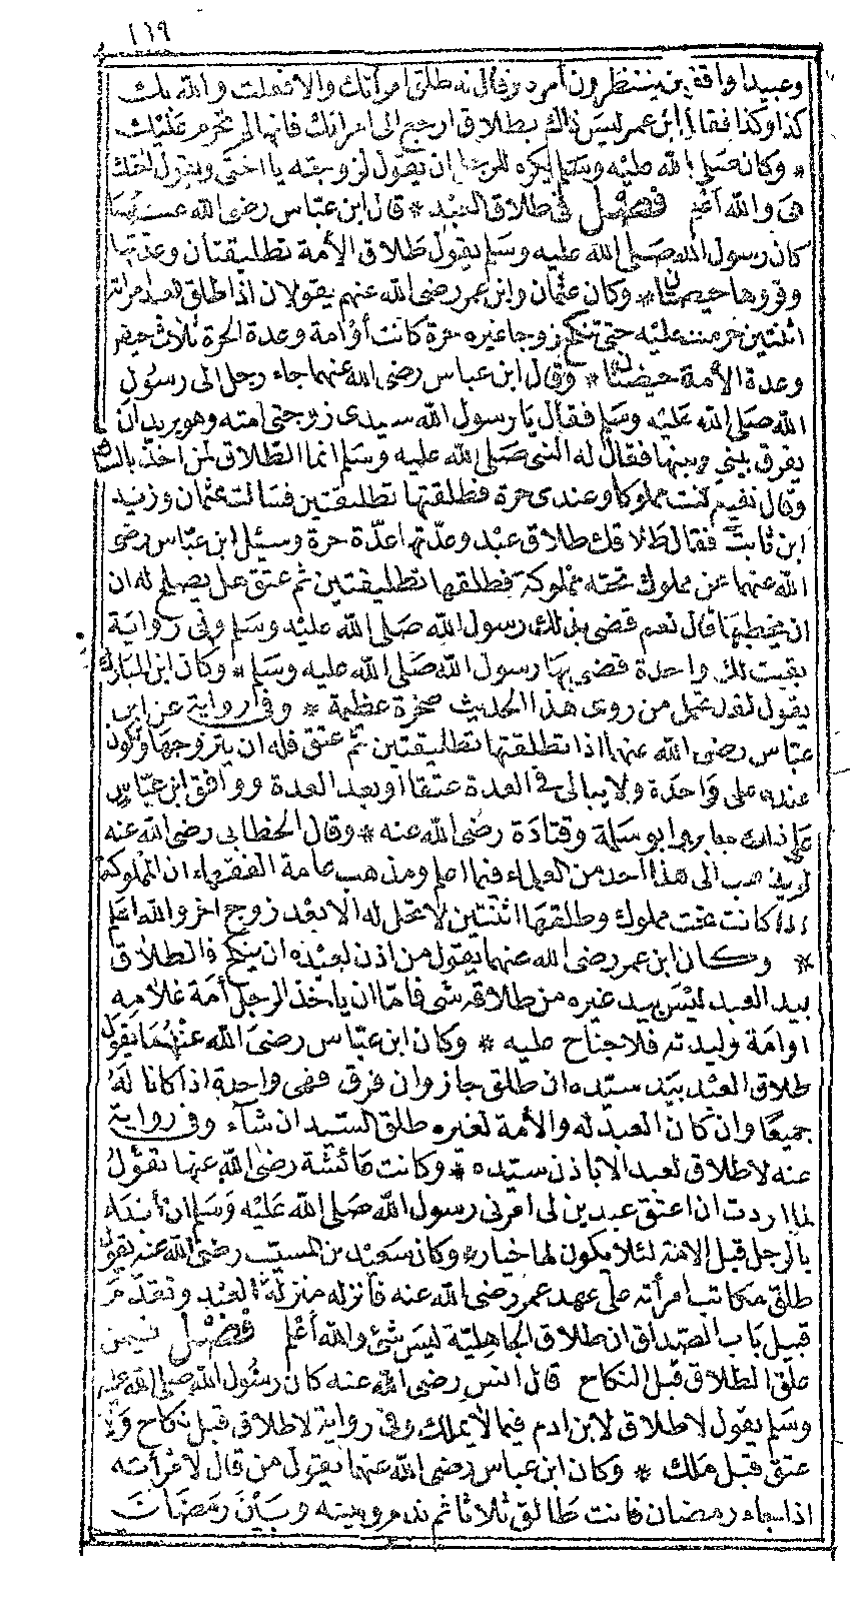 ١١٩
وعبيدا واقفين ينتظرون أمره فقال له طلق امرأتك والا فعلت والله بك
كذا وكذا فقال ابن عمر ليس ذاك بطلاق ارجع الى امرأتك فانها لم تحرم عليك
* وكان صلى الله عليه وسلم يكره للرجل ان يقول لزوجته يا اختى ويقول اختك
هى والله أعلم فصل فى طلاق العبد * قال ابن عباس رضى الله عنهما
كان رسول الله صلى الله عليه وسلم يقول طلاق الأمة تطليقتان وعدتها
وقروءها حيضتان * وكان عثمان وابن عمر رضى الله عنهم يقولان اذا طلق العبد امرأته
اثنتين حرمت عليه حتى تنكح زوجا غيره حرة كانت أو أمة وعدة الحرة ثلاث حيض
وعدة الأمة حيضتان * وقال ابن عباس رضى الله عنهما جاء رجل الى رسول
الله صلى الله عليه وسلم فقال يا رسول الله سيدى زوجنى امته وهو يريد ان
يفرق بينى وبينها فقال له النبى صلى الله عليه وسلم انما الطلاق لمن اخذ بالساق
وقال نفيع كنت مملوكا وعندى حرة فطلقتها تطليقتين فسألت عثمان وزيد
ابن ثابت فقال طلاقك طلاق عبد وعدتها عدة حرة وسئل ابن عباس رضى
الله عنهما عن مملوك تحته مملوكة فطلقها تطليقتين ثم عتق هل يصلح له ان
ان يخطبها قال نعم قضى بذلك رسول الله صلى الله عليه وسلم وفى رواية
بقيت لك واحدة قضى بها رسول الله صلى الله عليه وسلم * وكان ابن المبارك
يقول لقد تحمل من روى هذا الحديث صخرة عظيمة * وفى رواية عن ابن
عباس رضى الله عنهما اذا تطلقتها تطليقتين ثم عتق فله ان يتزوجها وتكون
عنده على واحدة ولا يبالى فى العدة عتقا او بعد العدة ووافق ابن عباس
على ذلك جابر وابو سلمة وقتادة رضى الله عنه * وقال الخطابى رضى الله عنه
لم يذهب الى هذا احد من العلماء فيما اعلم ومذهب عامة الفقهاء ان المملوكة
اذا كانت تحت مملوك وطلقها اثنتين لا تحل له الا بعد زوج اخر والله اعلم
* وكان ابن عمر رضى الله عنهما يقول من اذن لعبده ان ينكح فالطلاق
بيد العبد ليس بيد غيره من طلاقه شى فاما ان ياخذ الرجل أمة غلامه
او امة وليدته فلا جناح عليه * وكان ابن عباس رضى الله عنهما يقول
طلاق العبد بيد سيده ان طلق جاز وان فرق فهى واحدة اذا كانا له
جميعا وان كان العبد له والأمة لغيره طلق السيد ان شاء وفى رواية
عنه لا طلاق لعبد الا باذن سيده * وكانت عائشة رضى الله عنها تقول
لما اردت ان اعتق عبدين لى امرنى رسول الله صلى الله عليه وسلم ان أبتدأ
بالرجل قبل الامة لئلا يكون لها خيار * وكان سعيد بن المسيب رضى الله عنه يقول
طلق مكاتب امرأته على عهد عمر رضى الله عنه فأنزله منزلة العبد وتقدم
قبيل باب الصداق ان طلاق الجاهلية ليس شئ والله أعلم فصل فيمن
علق الطلاق قبل النكاح قال انس رضى الله عنه كان رسول الله صلى الله عليه
وسلم يقول لا طلاق لابن ادم فيما لا يملك وفى رواية لا طلاق قبل نكاح ولا
عتق قبل ملك * وكان ابن عباس رضى الله عنهما يقول من قال لامرأته
اذا جاء رمضان فانت طالق ثلاثا ثم ندم وبينه وبين رمضان